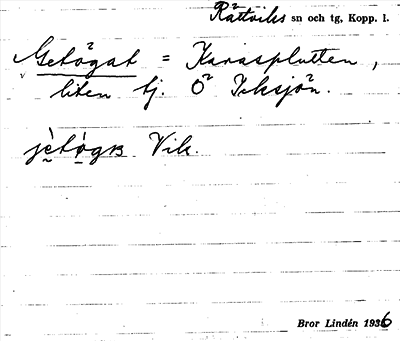 Rättviks sn och tg, Kopp. l.
Getögat = Karasplutten,
liten tj. O² Icksjön.
jètògrs Vik.
Bror Lindén 1936